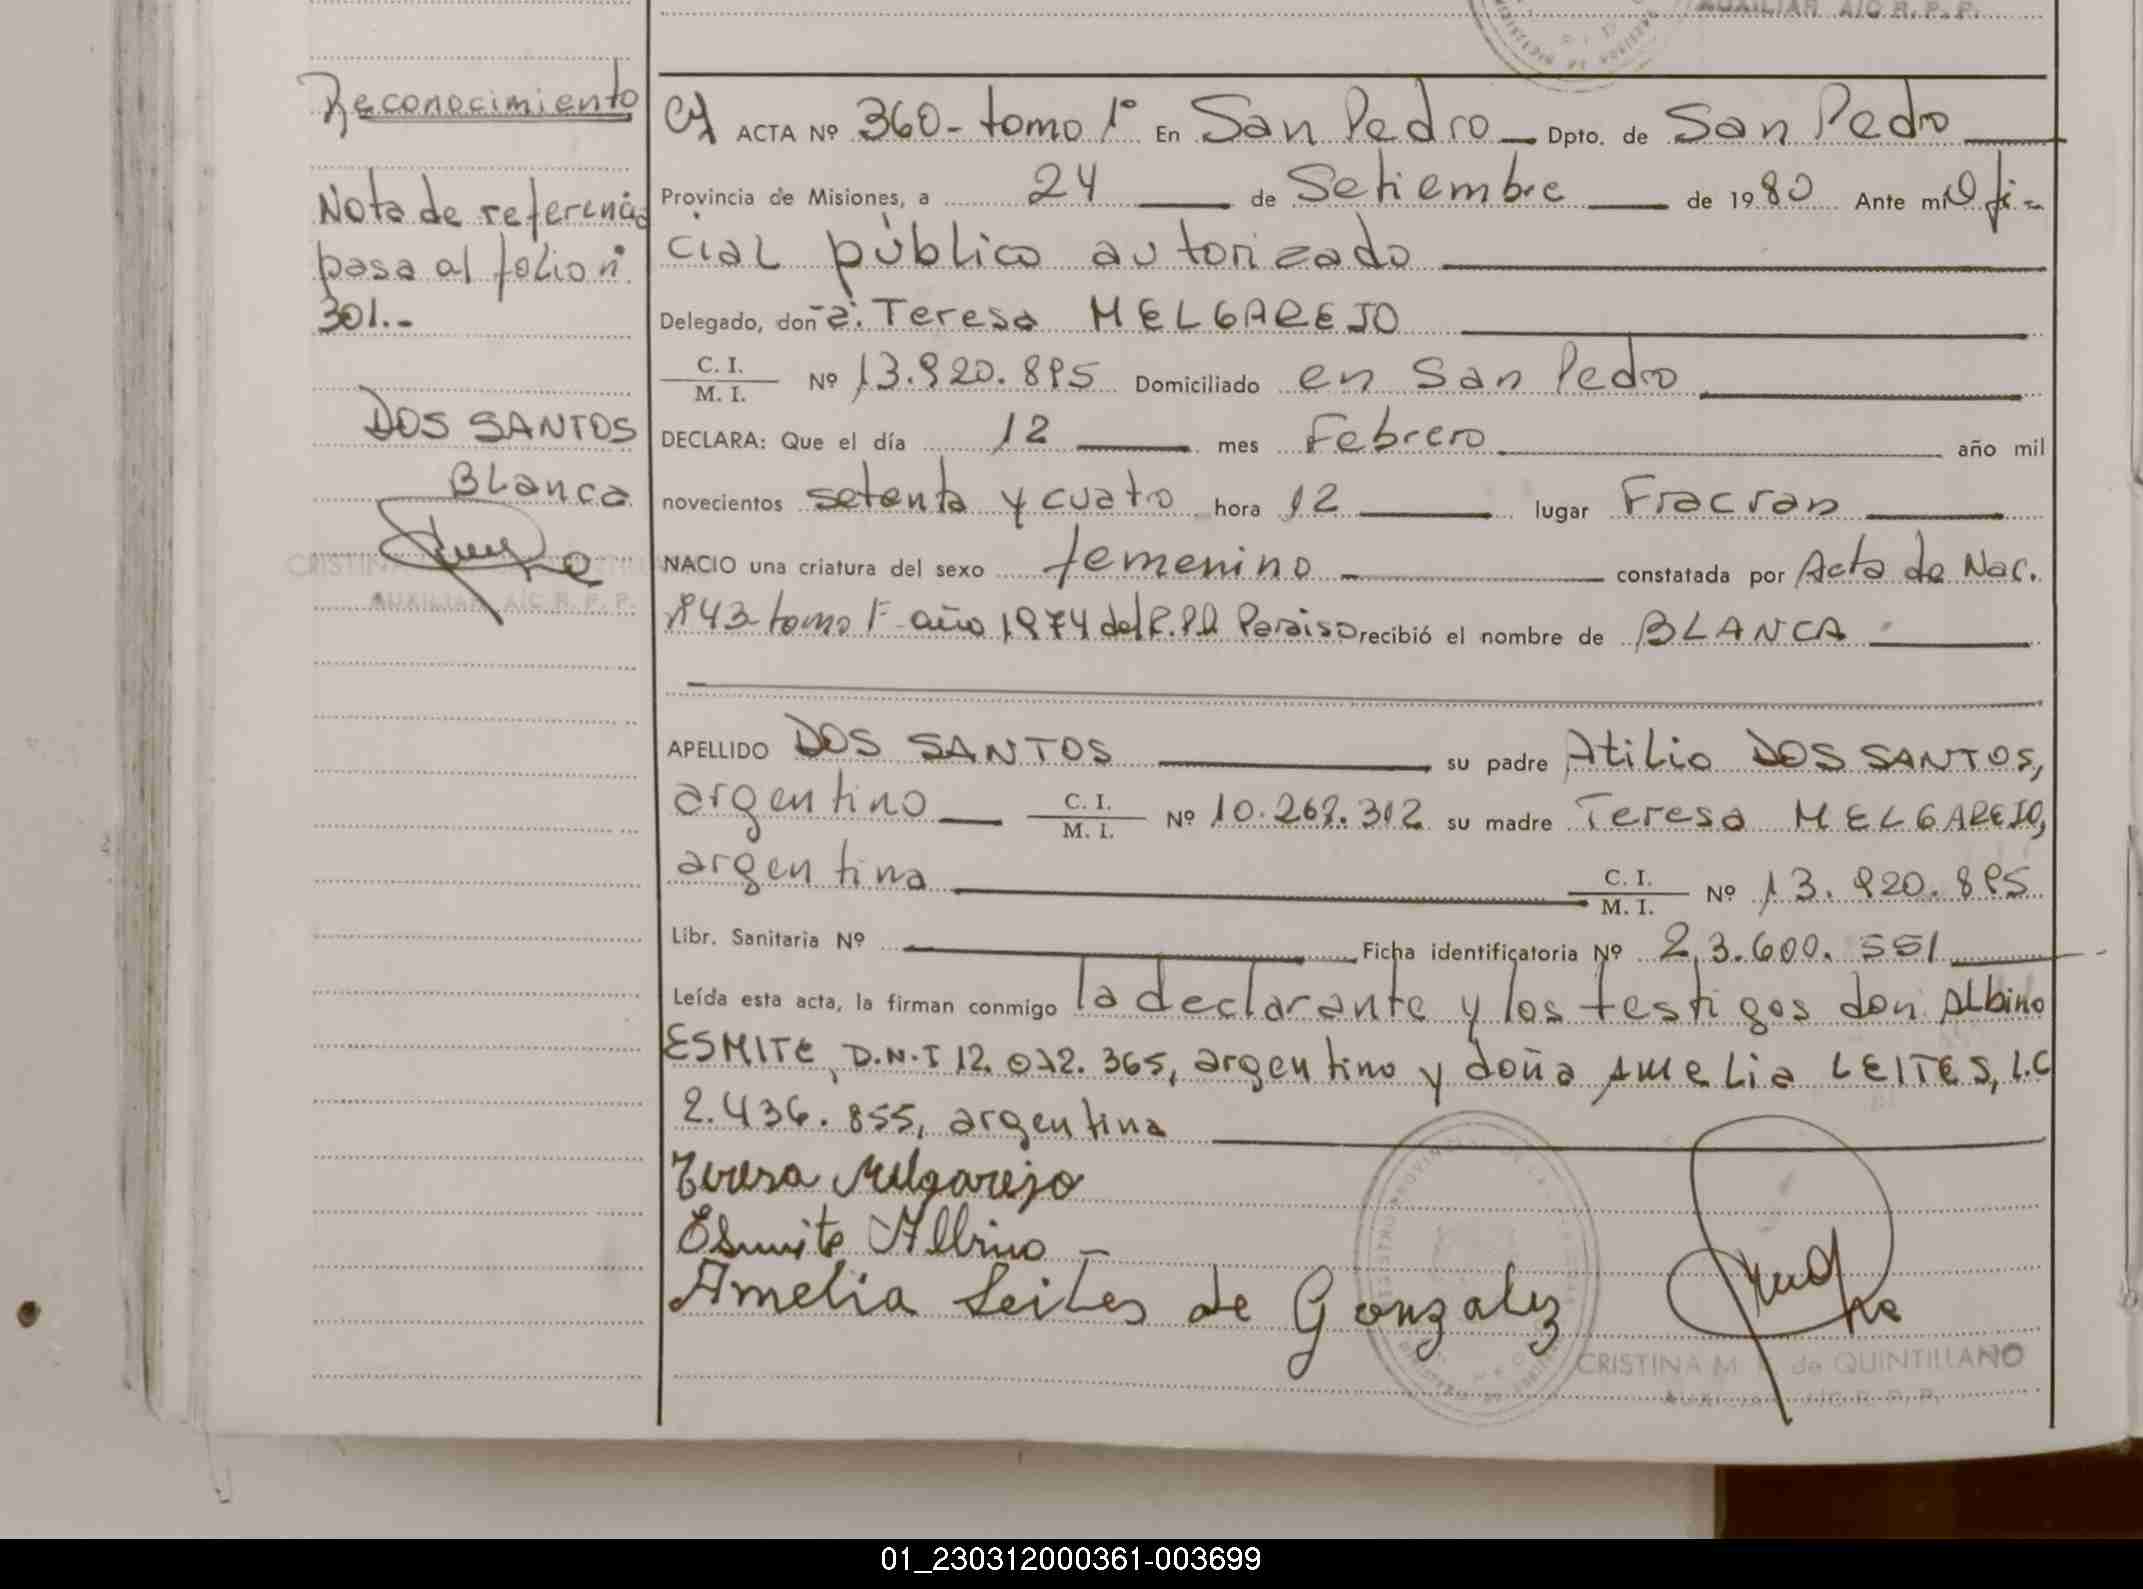 AUXILIAR A/C R. P. P.
Reconocimiento
Nota de referencia
pasa al folio nº
301.-
DOS SANTOS
Blanca
AUXILIAR A/C R. P. P.
ACTA Nº 360- tomo 1º En San Pedro Dpto. de San Pedro
Provincia de Misiones, a 24 de Setiembre de 1980 Ante mi Ofi-
cial público autorizado
Delegado, don-a: Teresa MELGAREJO
C. I.
M. I. Nº 13.920.895 Domiciliado en San Pedro
DECLARA: Que el día 12 mes Febrero año mil
novecientos setenta y cuatro hora 12 lugar Fracran
NACIO una criatura del sexo femenino constatada por Acta de Nac.
943 tomo 1º año 1974 del R.P.P. Paraiso recibió el nombre de BLANCA
APELLIDO DOS SANTOS su padre Atilio DOS SANTOS,
argentino C. I.
M. I. Nº 10.269.312 su madre Teresa MELGAREJO,
argentina C. I.
M. I. Nº 13.920.895
Libr. Sanitaria Nº Ficha identificatoria Nº 23.600.551
Leída esta acta, la firman conmigo la declarante y los testigos don Albino
ESMITE, D.N.I 12.072.365, argentino y doña Amelia LEITES, L.C
2.436.855, argentina
Teresa Melgarejo
Esmite Albino -
Amelia Leites de Gonzalez
CRISTINA M. de QUINTILLANO
AUXILIAR A/C R. P. P.
01_230312000361-003699